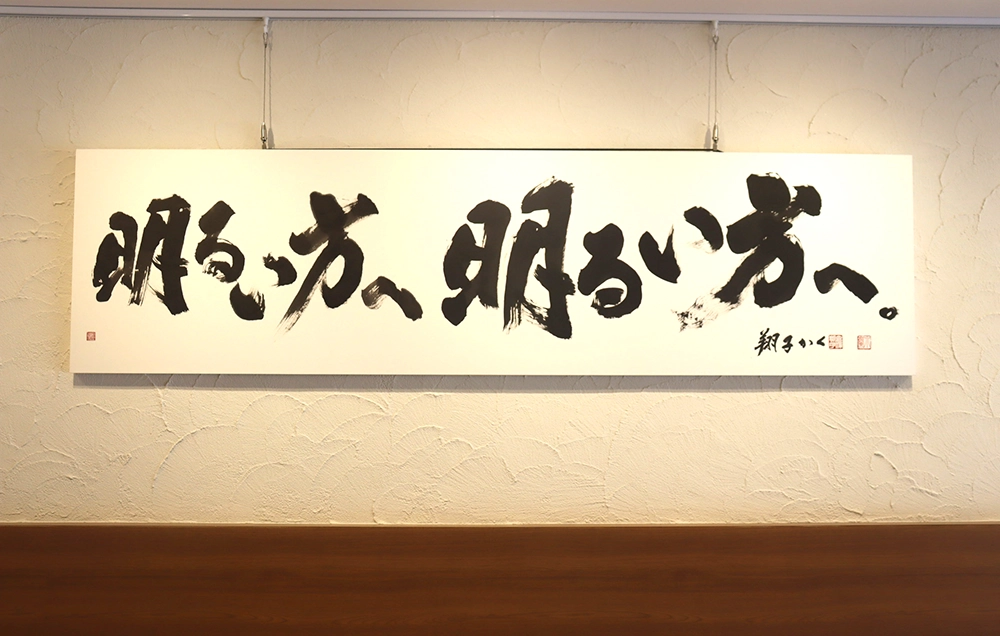 明るい方へ 明るい方へ。
翔子かく